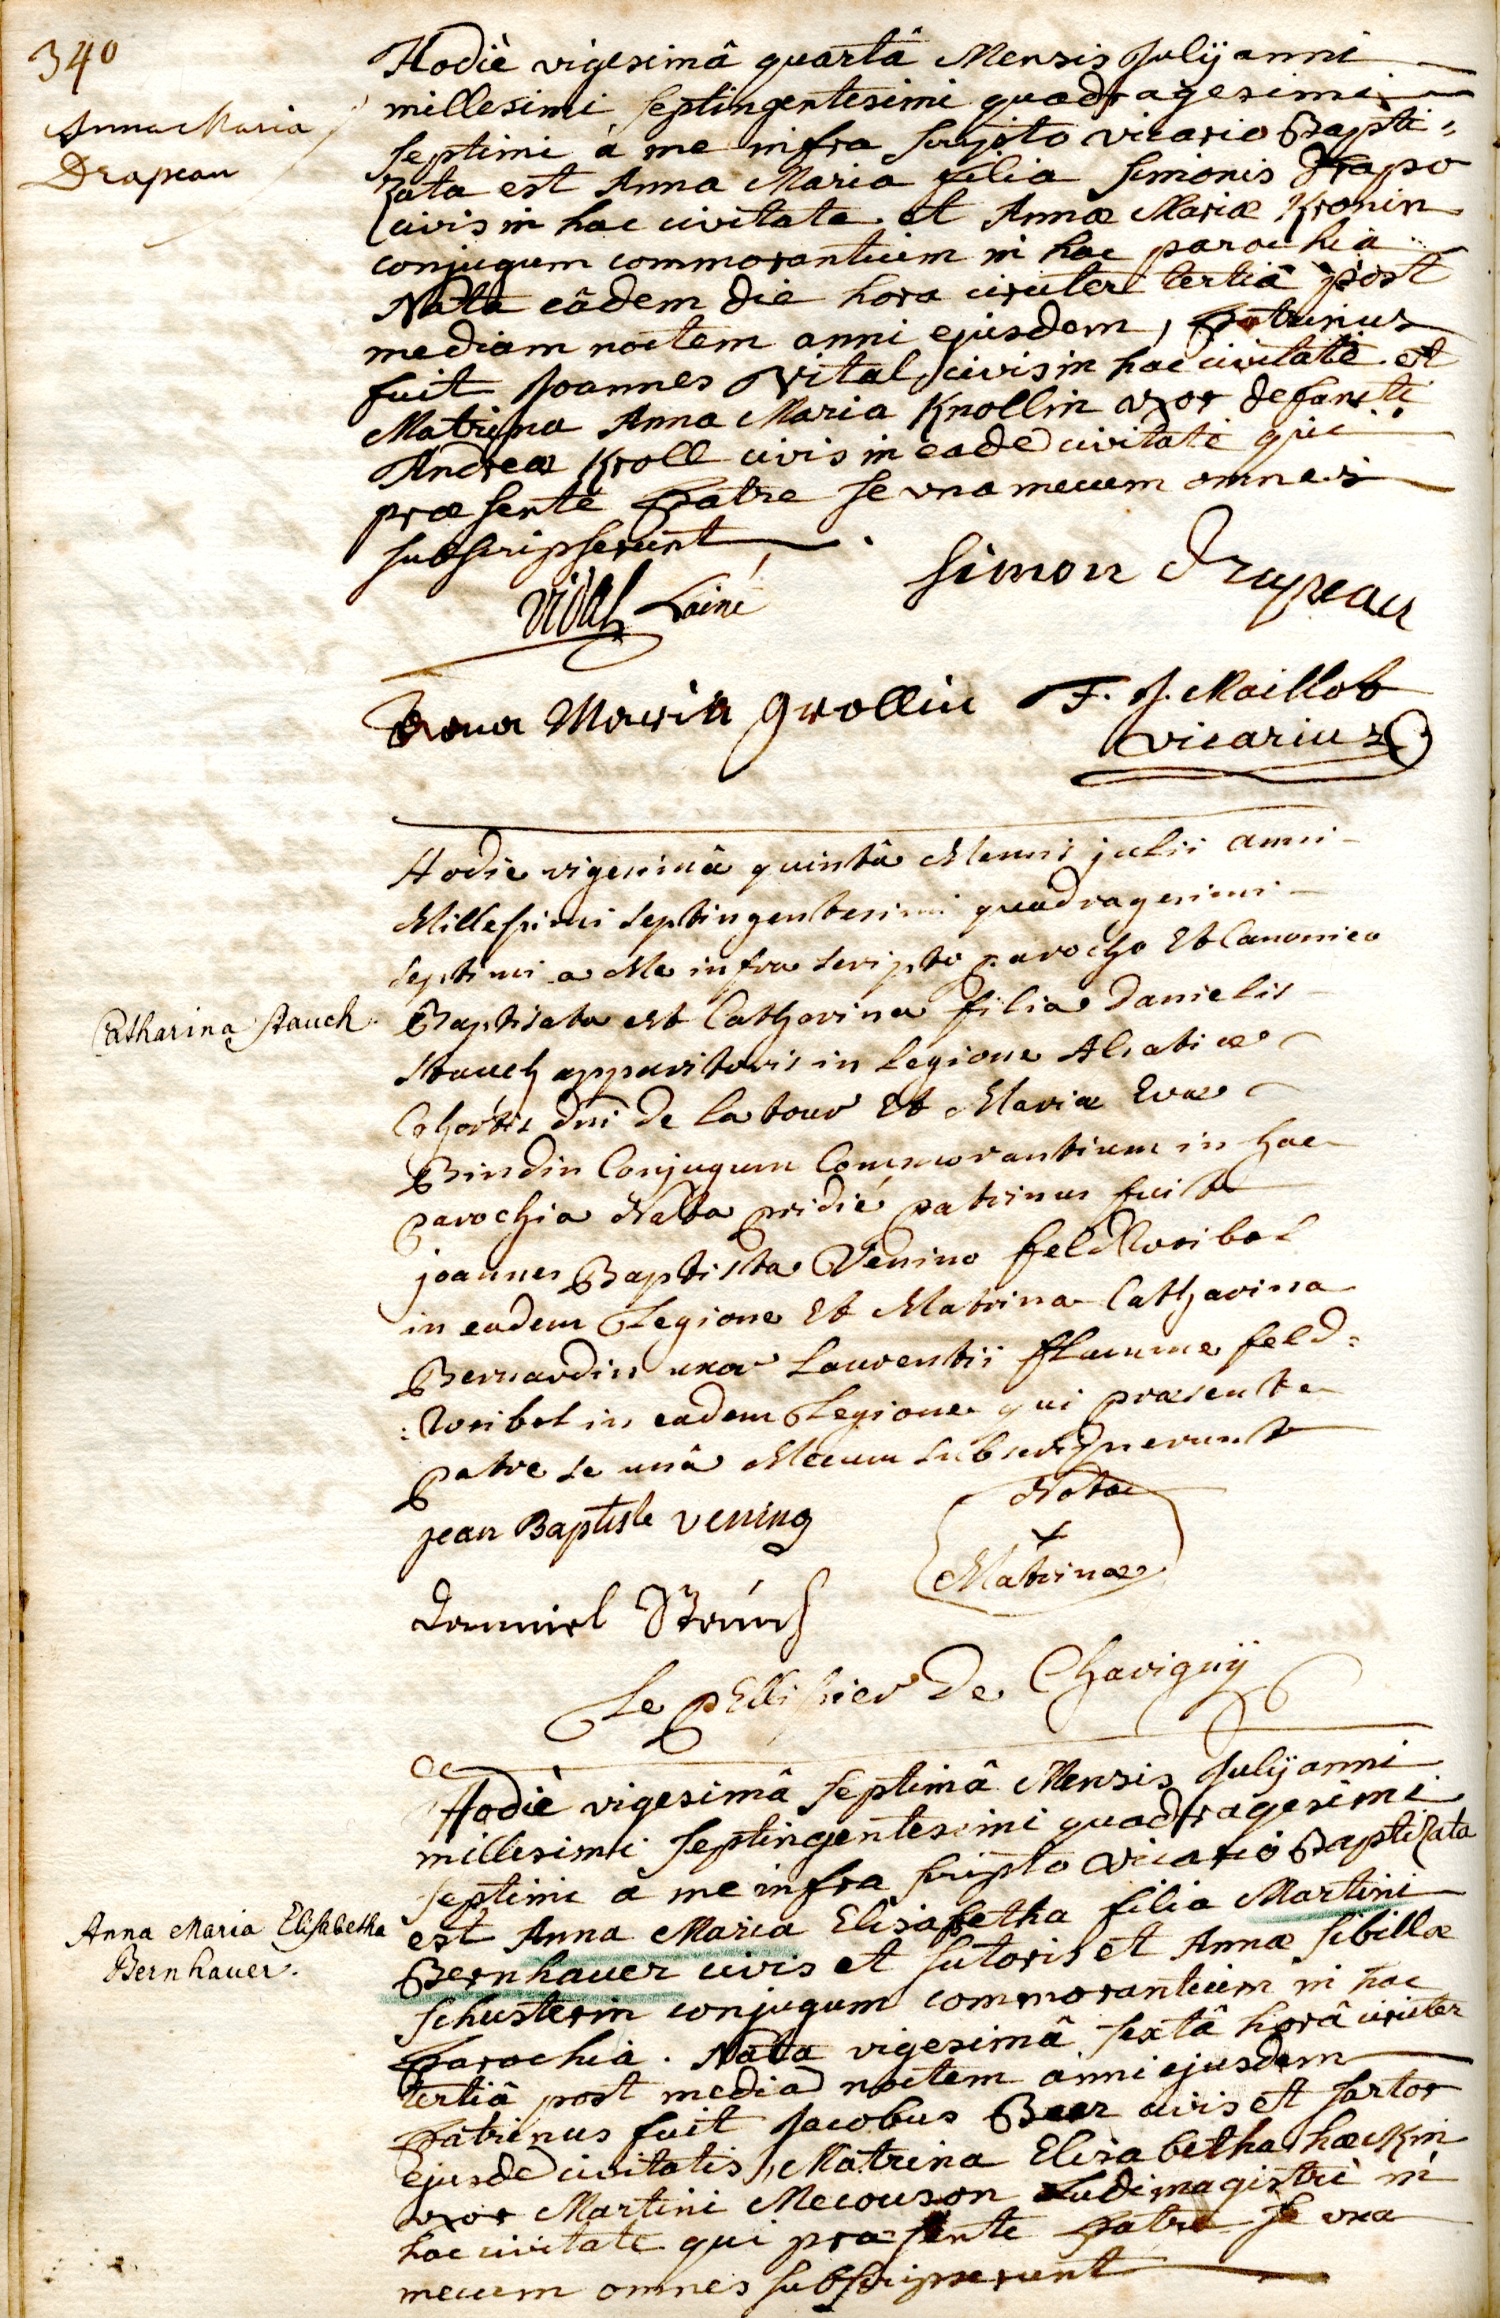 340
Anna Maria
Drapeau
Hodiè vigesimâ quartâ Mensis Julij anni
millesimi septingentesimi quadragesimi
septimi à me infra scripto vicario Bapti-
zata est Anna Maria filia Simonis Drapo
civis in hac civitate et Annæ Mariæ Kronin
conjugum commorantium in hac parochiâ
Nata eâdem die hora circiter tertiâ post
mediam noctem anni ejusdem, Patrinus
fuit Joannes Vital civis in hac civitate et
Matrina Anna Maria Knollin uxor defuncti
Andreæ Kroll civis in eadē civitate qui
præsente Patre se una mecum omnes
subscripserunt
Vidal Lainé
Simon Drapeau
Anna Maria Grollin
F. J. Maillot
vicarius
Hodie vigesimâ quintâ Mensis julii anni
Millesimi septingentesimi quadragesimi
septimi a Me infra scripto parocho Et Canonico
Catharina Stauch
Baptisata est Catharina filia Danielis
Stauch apparitoris in Legione Alsatiæ
Cohortis dni De la tour Et Mariæ Evæ
Bindin Conjugum Commorantium in hac
parochia Nata pridie patrinus fuit
joannes Baptista Venino feldtweibel
in eadem Legione Et Matrina Catharina
Bernardin uxor Laurentii flamme feld=
:weibel in eadem Legione qui præsente
patre se unâ Mecum subscripserunt
jean Baptiste Vening
Nota
+
Matrinæ
Danniel Strauch
Le pellissier De Chavignÿ
Hodiè vigesimâ septimâ Mensis Julij anni
millesimi septingentesimi quadragesimi
septimi à me infra scripto vicario Baptizata
Anna Maria Elisabetha
Bernhauer.
est Anna Maria Elisabetha filia Martini
Bernhauer civis et sutoris et Annæ Sibillæ
Schusterin conjugum commorantium in hac
Parochiâ. Nata vigesimâ sextâ horâ circiter
tertiâ post mediā noctem anni ejusdem
Patrinus fuit Jacobus Beer civis et sartor
ejusdē civitatis, Matrina Elisabetha hackin
uxor Martini Mecouson Ludimagistri in
hac civitate qui præsente Patre se una
mecum omnes subscripserunt